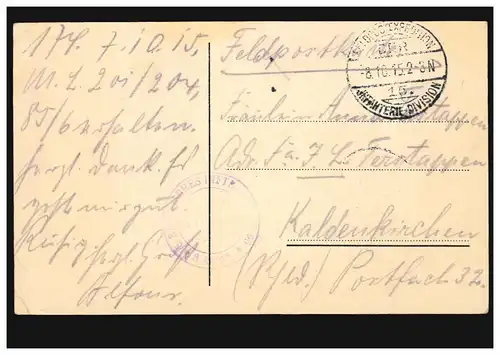 174. 7.10.15,
M. L. 201/204,
85/6 erhalten.
herzl. Dank. Es
geht mir gut.
Ruhig
herzl. Gruß
Alfons.
Feldpostkarte
FELDPOST-EXPEDITION
DER
8.10.15.2-3N
15.
INFANTERIE-DIVISION
Fräulein Anna Terstappen
Adr. Fa. J L Terstappen
Kaldenkirchen
(Rhld.) Postfach 32.